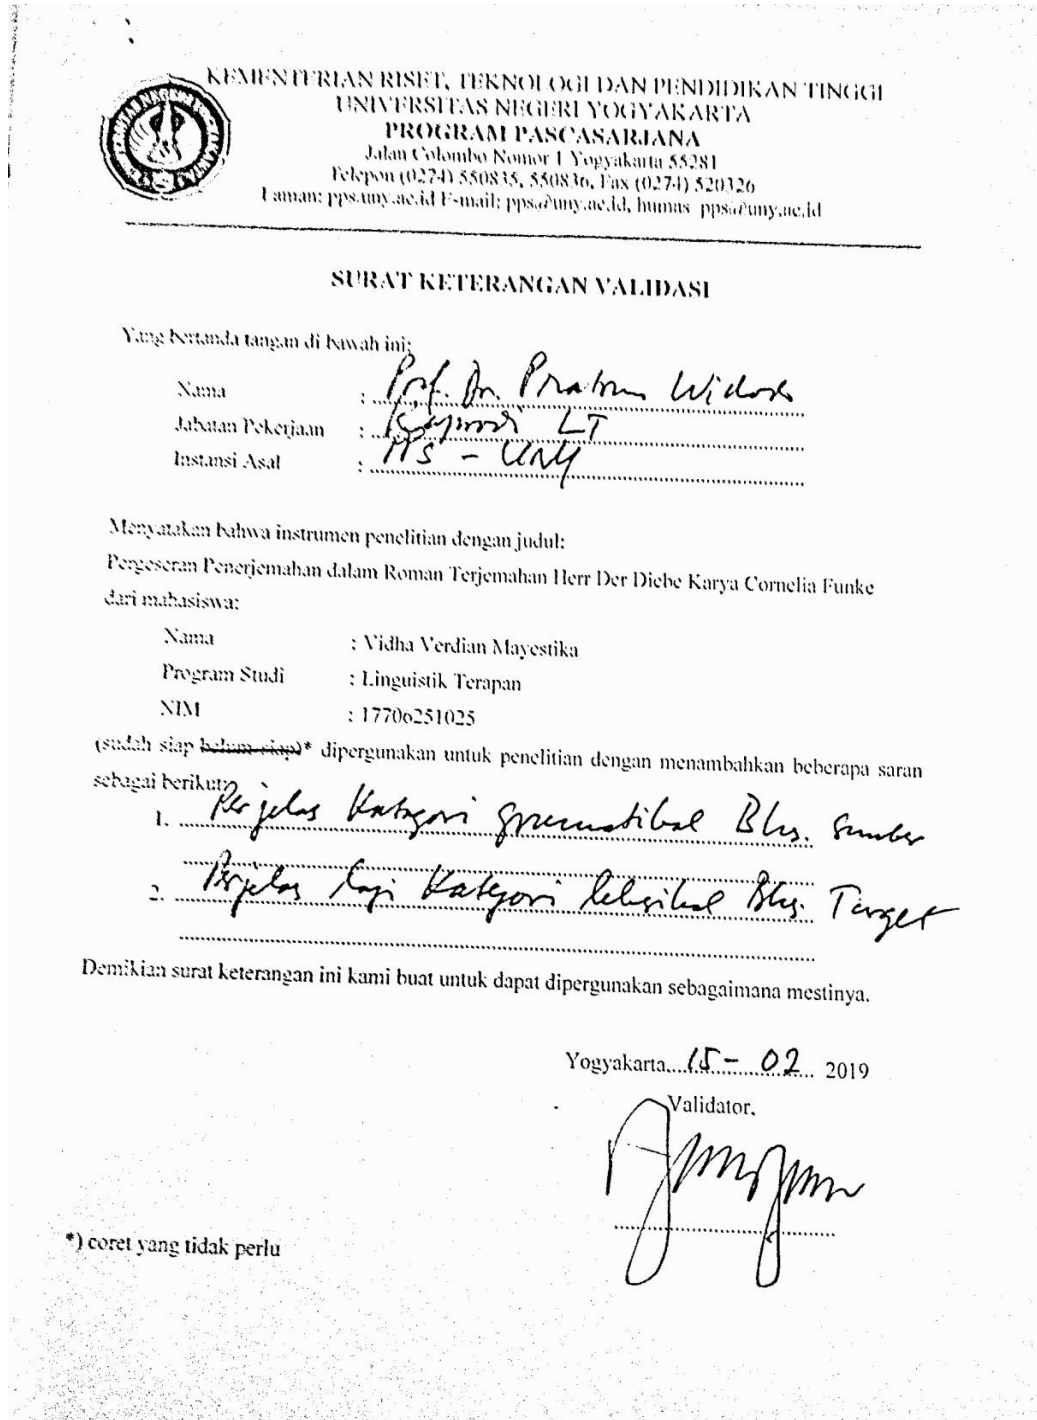 KEMENTERIAN RISET, TEKNOLOGI DAN PENDIDIKAN TINGGI
UNIVERSITAS NEGERI YOGYAKARTA
PROGRAM PASCASARJANA
Jalan Colombo Nomor 1 Yogyakarta 55281
Telepon (0274) 550835, 550836, Fax (0274) 520326
Laman: pps.uny.ac.id E-mail: pps@uny.ac.id, humas_pps@uny.ac.id
SURAT KETERANGAN VALIDASI
Yang bertanda tangan di bawah ini:
Nama : Prof. Dr. Pratomo Widodo
Jabatan Pekerjaan : Kaprodi LT
Instansi Asal : PPS - UNY
Menyatakan bahwa instrumen penelitian dengan judul:
Pergeseran Penerjemahan dalam Roman Terjemahan Herr Der Diebe Karya Cornelia Funke
dari mahasiswa:
Nama : Vidha Verdian Mayestika
Program Studi : Linguistik Terapan
NIM : 17706251025
(sudah siap belum siap)* dipergunakan untuk penelitian dengan menambahkan beberapa saran
sebagai berikut:
1. Perjelas Kategori gramatikal Bhs. Sumber
2. Perjelas lagi Kategori leksikal Bhs. Target
Demikian surat keterangan ini kami buat untuk dapat dipergunakan sebagaimana mestinya.
Yogyakarta, 15 - 02 2019
Validator,
*) coret yang tidak perlu